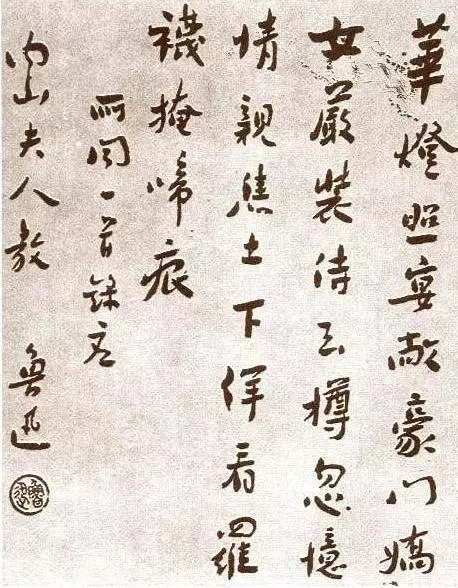 華燈照宴敞豪門嬌
女嚴裝侍玉樽忽憶
情親焦土下佯看羅
襪掩啼痕
所聞一首錄
內山夫人教 魯迅
魯迅